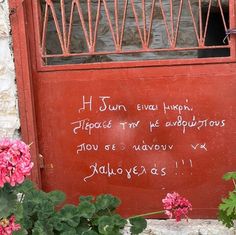 Η Ζωη ειναι μικρή.
Πέρασέ την με ανθρώπους
που σε κάνουν να
χαμογελάς !!!